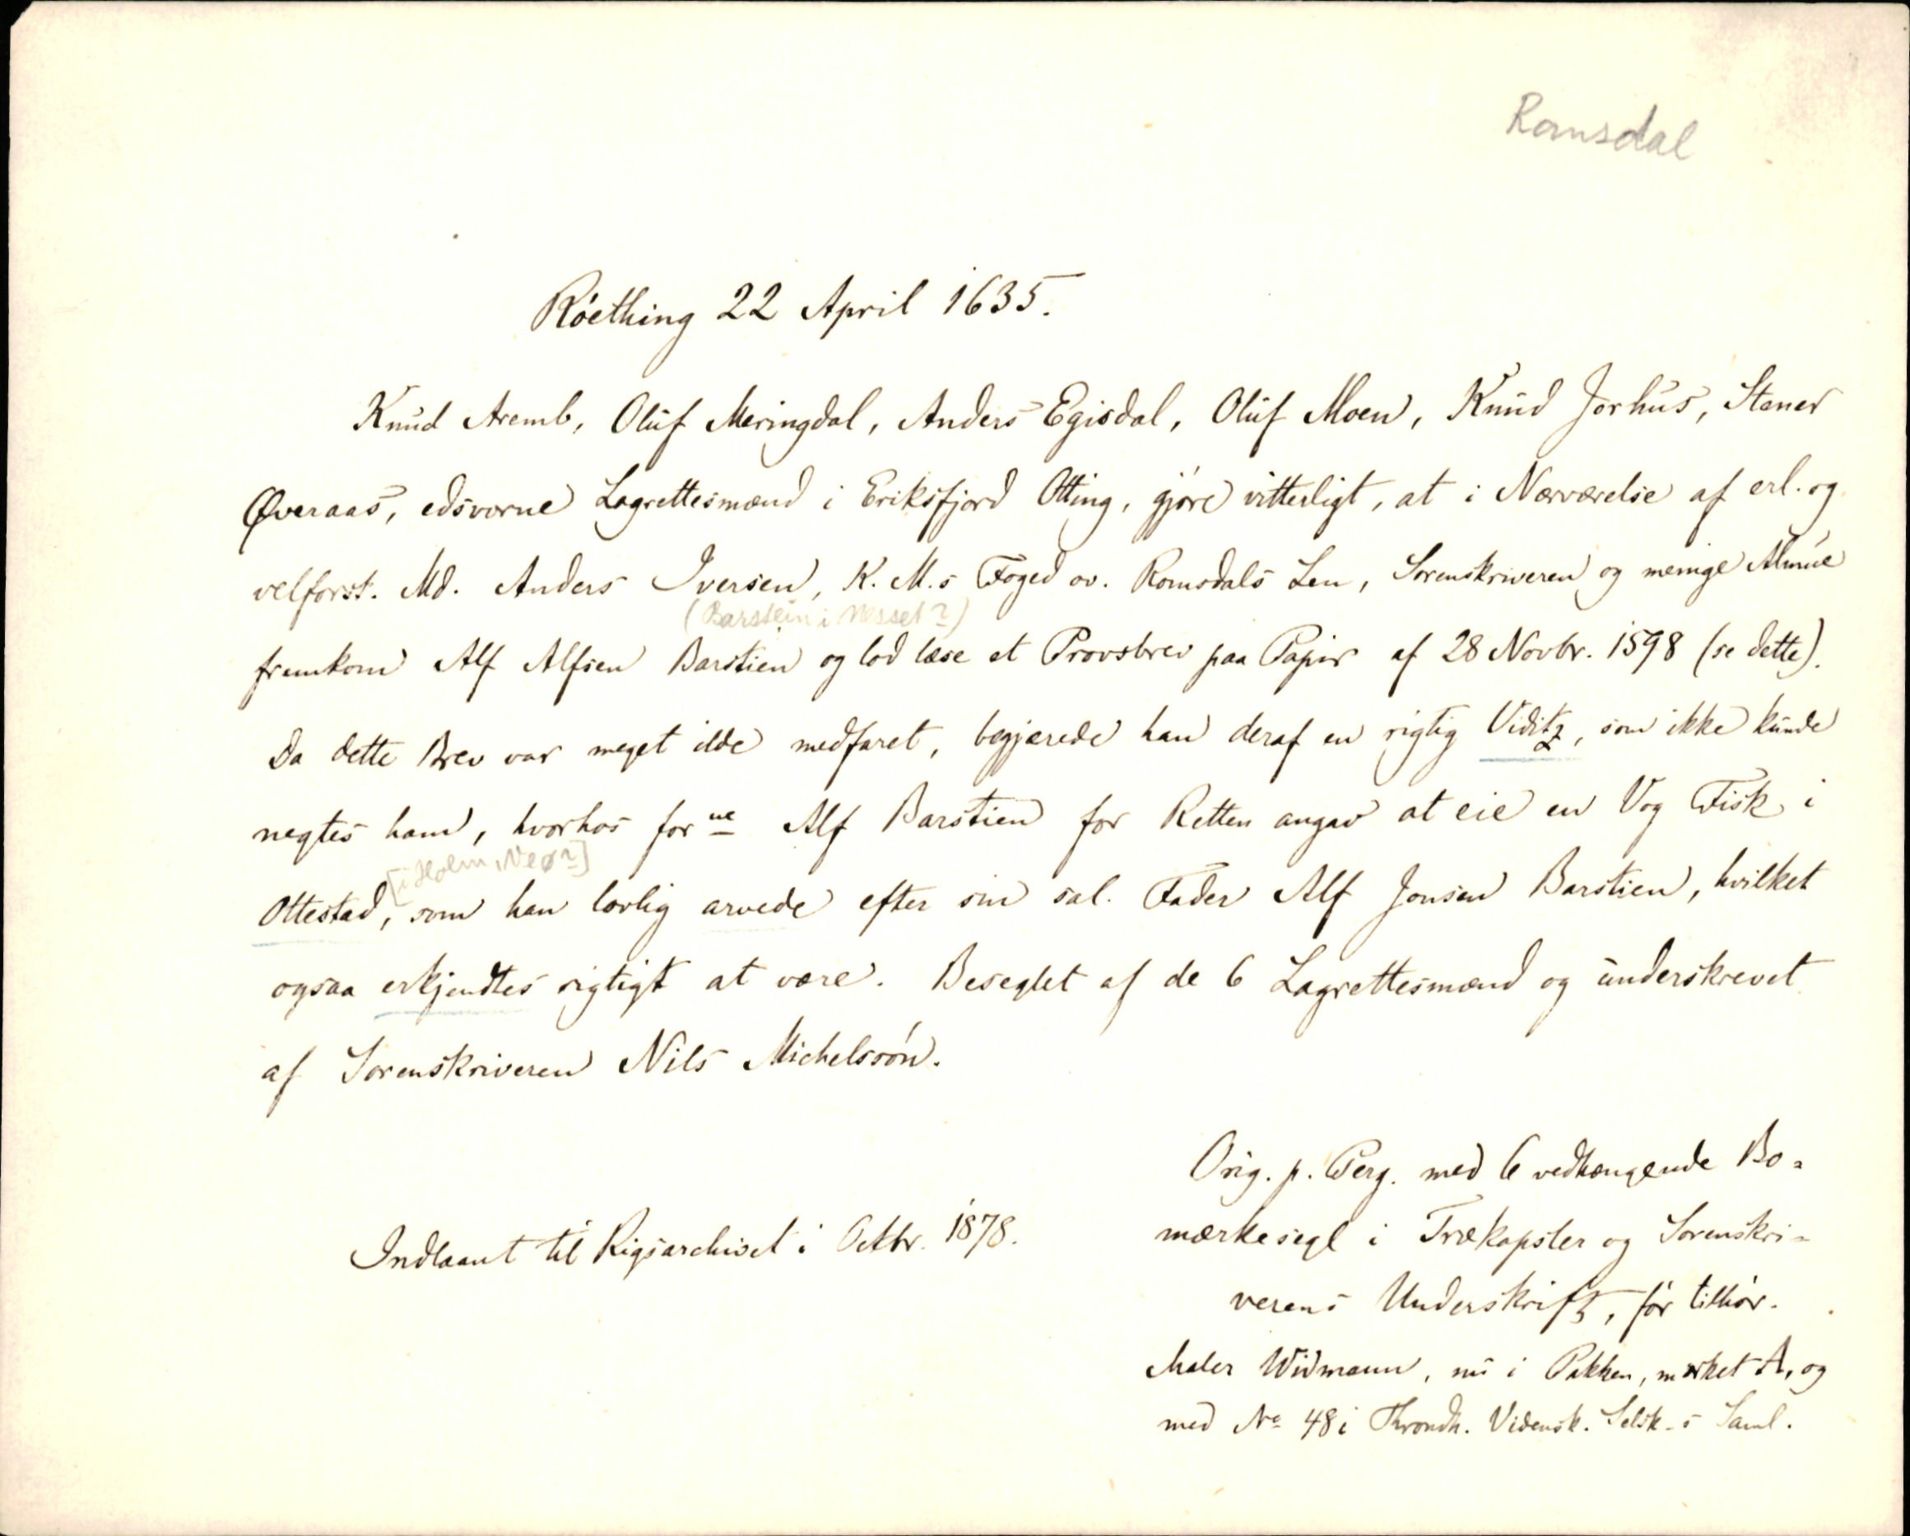 Romsdal
Röething 22 April 1635.
Knud Aremb, Oluf Meringdal, Anders Egisdal, Oluf Moen, Knud Jorhus, Stener
Øveraas, edsvorne Lagrettesmænd i Eriksfjord Otting, gjöre vitterligt, at i Nærværelse af erl. og
velforst. Md. Anders Iversen, K. M.s Foged ov. Romsdals Len, Sorenskriveren og menige Almue
(Barstein i Nesset?)
fremkom Alf Alfsen Barstien og lod læse et Provsbrev paa Papir af 28 Novbr. 1598 (se dette).
Da dette Brev var meget ilde medfaret, begjærede han deraf en rigtig Viditz, som ikke kunde
negtes ham, hvorhos forne Alf Barstien for Retten angav at eie en Vog Fisk i
[i Holm, Veø?]
Ottestad, som han lovlig arvede efter sin sal. Fader Alf Jonsen Barstien, hvilket
ogsaa erkjendtes rigtigt at være. Beseglet af de 6 Lagrettesmænd og underskrevet
af Sorenskriveren Nils Michelssön.
Orig. p. Perg. med 6 vedhængende Bo-
mærkesegl i Trækapsler og Sorenskri-
verens Underskrift, för tilhör.
Maler Widmann, nu i Pakken, mærket A, og
med No 48 i Throndh. Vidensk. Selsk-s Saml.
Indlaant til Rigsarchivet i Octbr. 1878.